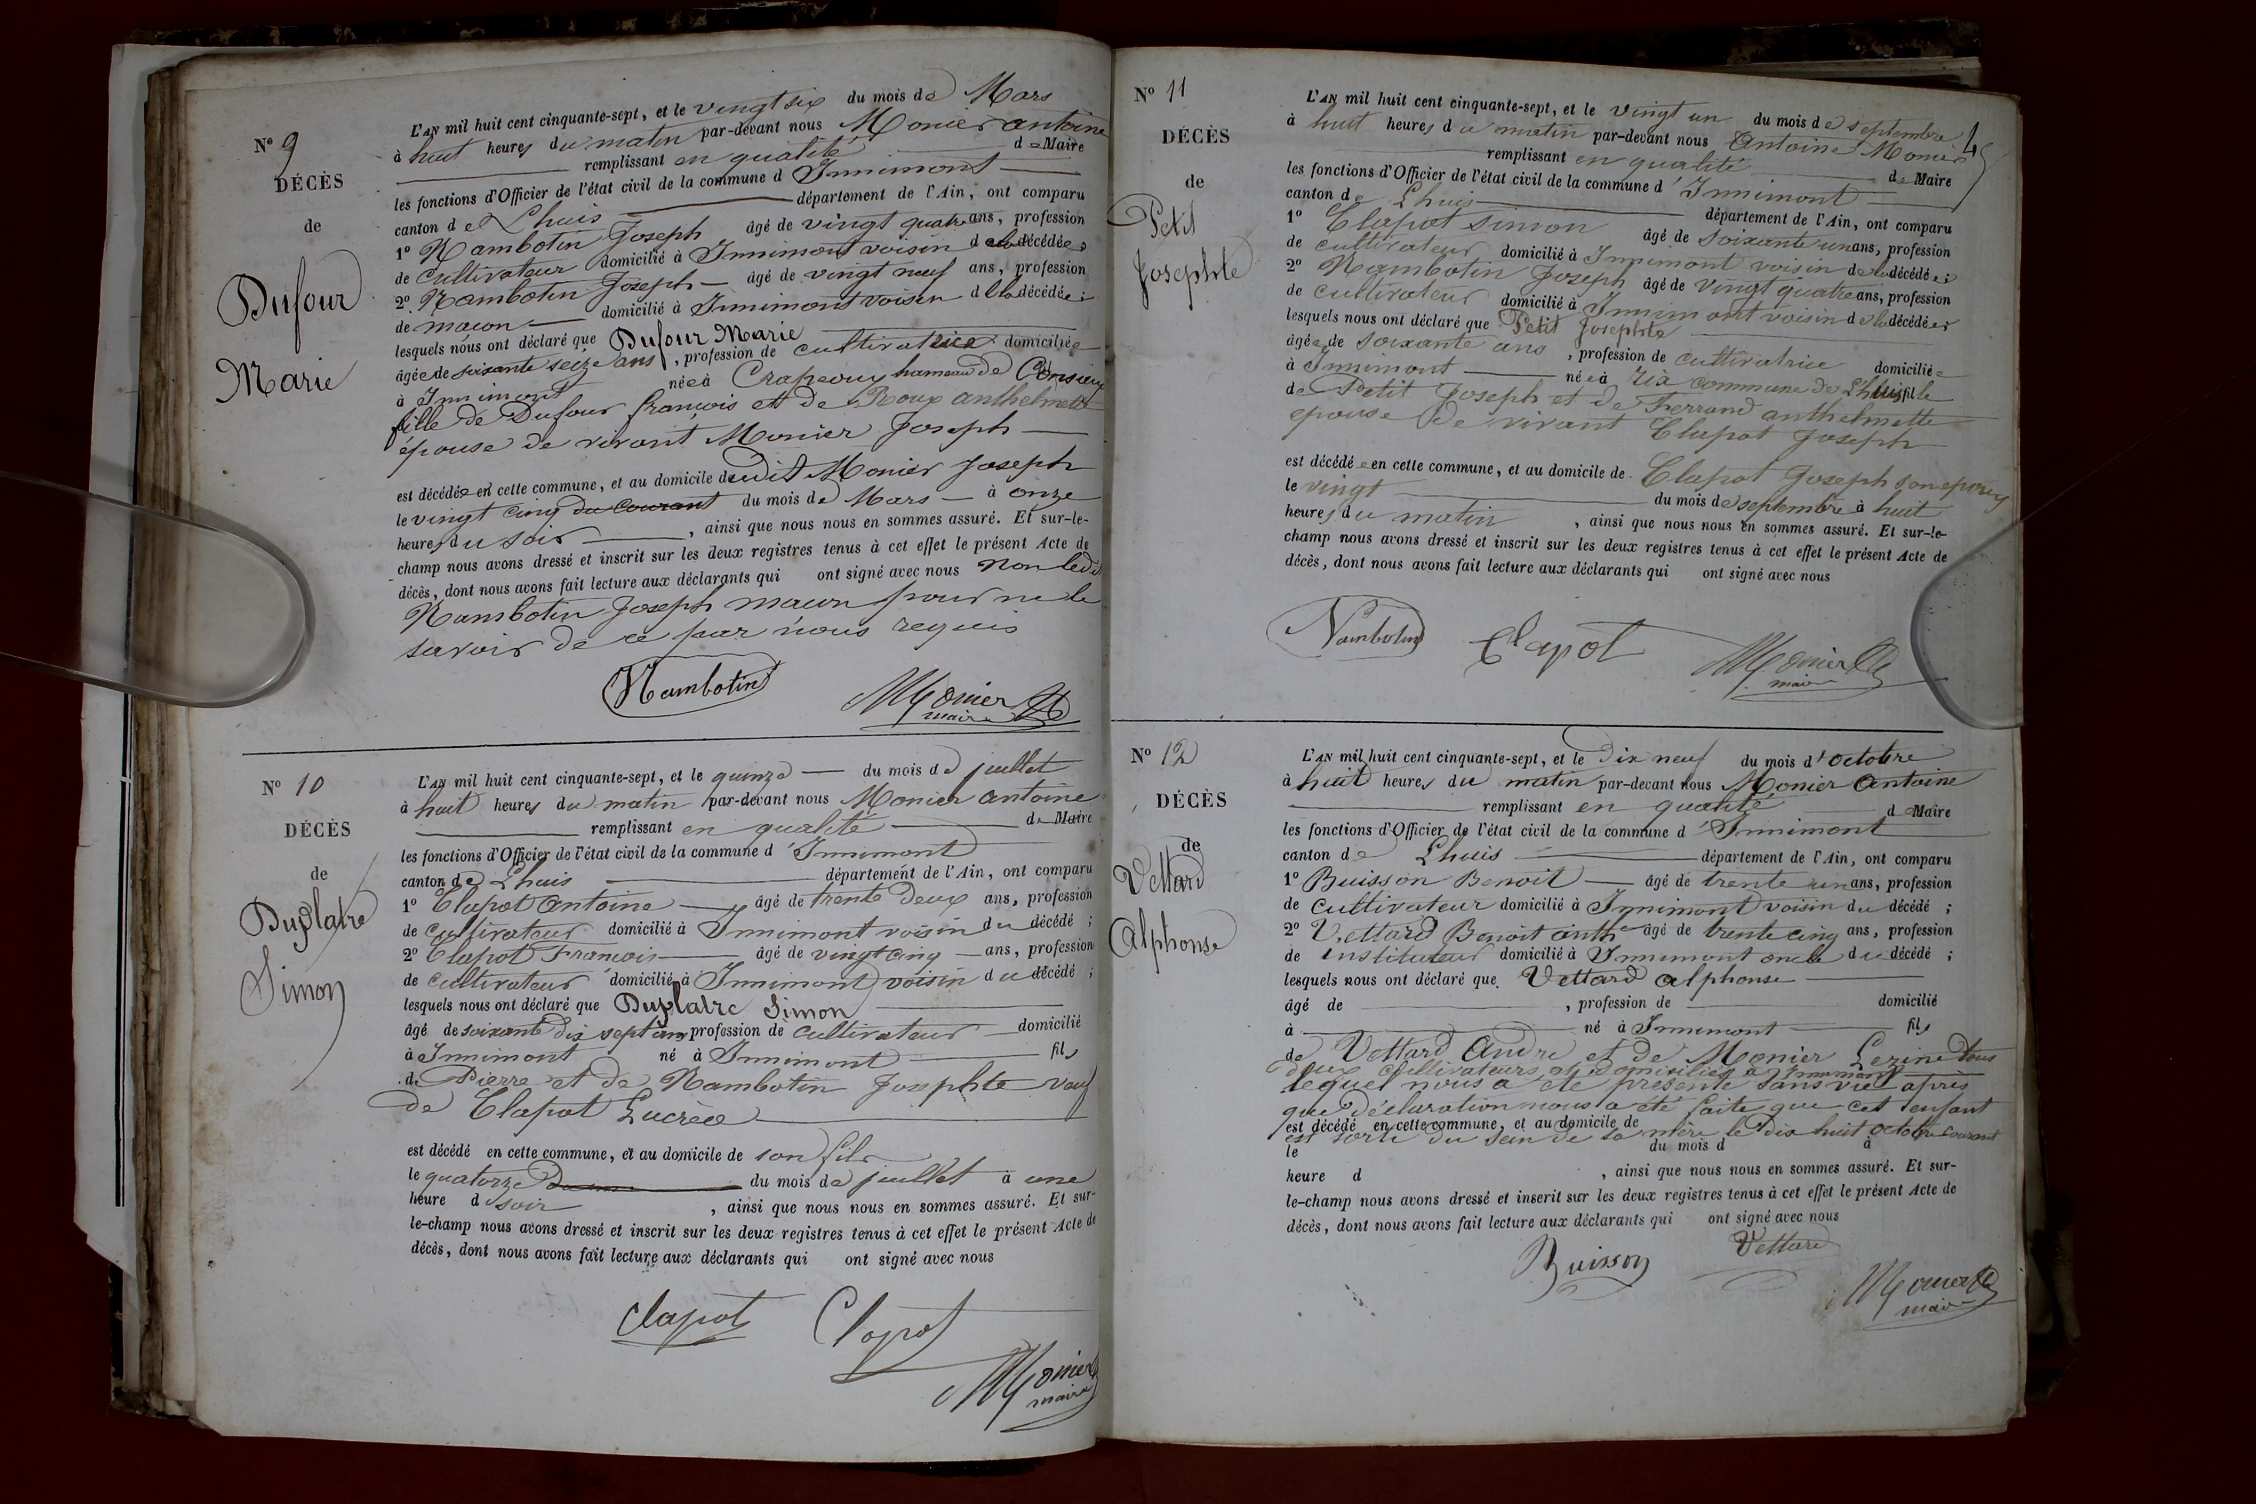 N° 9
DÉCÈS
de
Dufour
Marie
L'AN mil huit cent cinquante-sept, et le vingt six du mois de Mars
à huit heures du matin par-devant nous Monier antoine
remplissant en qualité de Maire
les fonctions d'Officier de l'état civil de la commune d'Innimont
canton de Lhuis département de l'Ain, ont comparu
1° Nambotin Joseph âgé de vingt quatre ans, profession
de cultivateur domicilié à Innimont voisin de la décédée;
2° Nambotin Joseph âgé de vingt neuf ans, profession
de maçon domicilié à Innimont voisin de la décédée;
lesquels nous ont déclaré que Dufour Marie
âgée de soixante seize ans, profession de cultivatrice domiciliée
à Innimont née à Crapeoux hameau de
fille de Dufour françois et de Roux anthelmette
épouse de vivant Monier Joseph
est décédée en cette commune, et au domicile dudit Monier Joseph
le vingt cinq du courant du mois de Mars à onze
heures du soir, ainsi que nous nous en sommes assuré. Et sur-le-
champ nous avons dressé et inscrit sur les deux registres tenus à cet effet le présent Acte de
décès, dont nous avons fait lecture aux déclarants qui ont signé avec nous non ledit
Nambotin Joseph macon pour ne le
savoir de ce par nous requis
Nambotin
Monier
maire
N° 10
DÉCÈS
de
Duplatre
Simon
L'AN mil huit cent cinquante-sept, et le quinze du mois de juillet
à huit heures du matin par-devant nous Monier antoine
remplissant en qualité de Maire
les fonctions d'Officier de l'état civil de la commune d'Innimont
canton de Lhuis département de l'Ain, ont comparu
1° Clapot antoine âgé de trente deux ans, profession
de cultivateur domicilié à Innimont voisin du décédé;
2° Clapot François âgé de vingt cinq ans, profession
de cultivateur domicilié à Innimont voisin du décédé;
lesquels nous ont déclaré que Duplatre Simon
âgé de soixante dix sept ans profession de cultivateur domicilié
à Innimont né à Innimont fils
de Pierre et de Nambotin Josephte veuf
de Clapot Lucrèce
est décédé en cette commune, et au domicile de son fils
le quatorze du mois de juillet à une
heure d soir, ainsi que nous nous en sommes assuré. Et sur-
le-champ nous avons dressé et inscrit sur les deux registres tenus à cet effet le présent Acte de
décès, dont nous avons fait lecture aux déclarants qui ont signé avec nous
Clapot Clapot
Monier
maire
N° 11
DÉCÈS
de
Petit
Josephte
L'AN mil huit cent cinquante-sept, et le vingt un du mois de septembre
à huit heures du matin par-devant nous Antoine Monier
remplissant en qualité de Maire
les fonctions d'Officier de l'état civil de la commune d'Innimont
canton de Lhuis département de l'Ain, ont comparu
1° Clapot Simon âgé de soixante un ans, profession
de cultivateur domicilié à Innimont voisin de la décédée;
2° Nambotin Joseph âgé de vingt quatre ans, profession
de cultivateur domicilié à Innimont voisin de la décédée
lesquels nous ont déclaré que Petit Josephte
âgée de soixante ans, profession de cultivatrice domiciliée
à Innimont née à rix commune de Lhuis fille
de Petit Joseph et de Ferrand anthelmette
epouse de vivant Clapot Joseph
est décédée en cette commune, et au domicile de Clapot Joseph son epoux
le vingt du mois de septembre à huit
heures du matin, ainsi que nous nous en sommes assuré. Et sur-le-
champ nous avons dressé et inscrit sur les deux registres tenus à cet effet le présent Acte de
décès, dont nous avons fait lecture aux déclarants qui ont signé avec nous
Nambotin Clapot Monier
maire
N° 12
DÉCÈS
de
Vettard
Alphonse
L'AN mil huit cent cinquante-sept, et le dix neuf du mois d'octobre
à huit heures du matin par-devant nous Monier Antoine
remplissant en qualité de Maire
les fonctions d'Officier de l'état civil de la commune d'Innimont
canton de Lhuis département de l'Ain, ont comparu
1° Buisson Benoit âgé de trente un ans, profession
de cultivateur domicilié à Innimont voisin du décédé;
2° Vettard Benoit anth âgé de trente cinq ans, profession
de instituteur domicilié à Innimont oncle du décédé;
lesquels nous ont déclaré que Vettard alphonse
âgé de, profession de domicilié
à né à Innimont fils
de Vettard André et de Monier Lezine tous
deux cultivateurs et domiciliés à Innimont
lequel nous a été présenté sans vie après
que déclaration nous a été faite que cet enfant
est décédé en cette commune, et au domicile de
est sorti du sein de sa mère le dix huit octobre courant
le du mois d à
heure d, ainsi que nous nous en sommes assuré. Et sur-
le-champ nous avons dressé et inscrit sur les deux registres tenus à cet effet le présent Acte de
décès, dont nous avons fait lecture aux déclarants qui ont signé avec nous
Buisson Vettard
Monier
maire